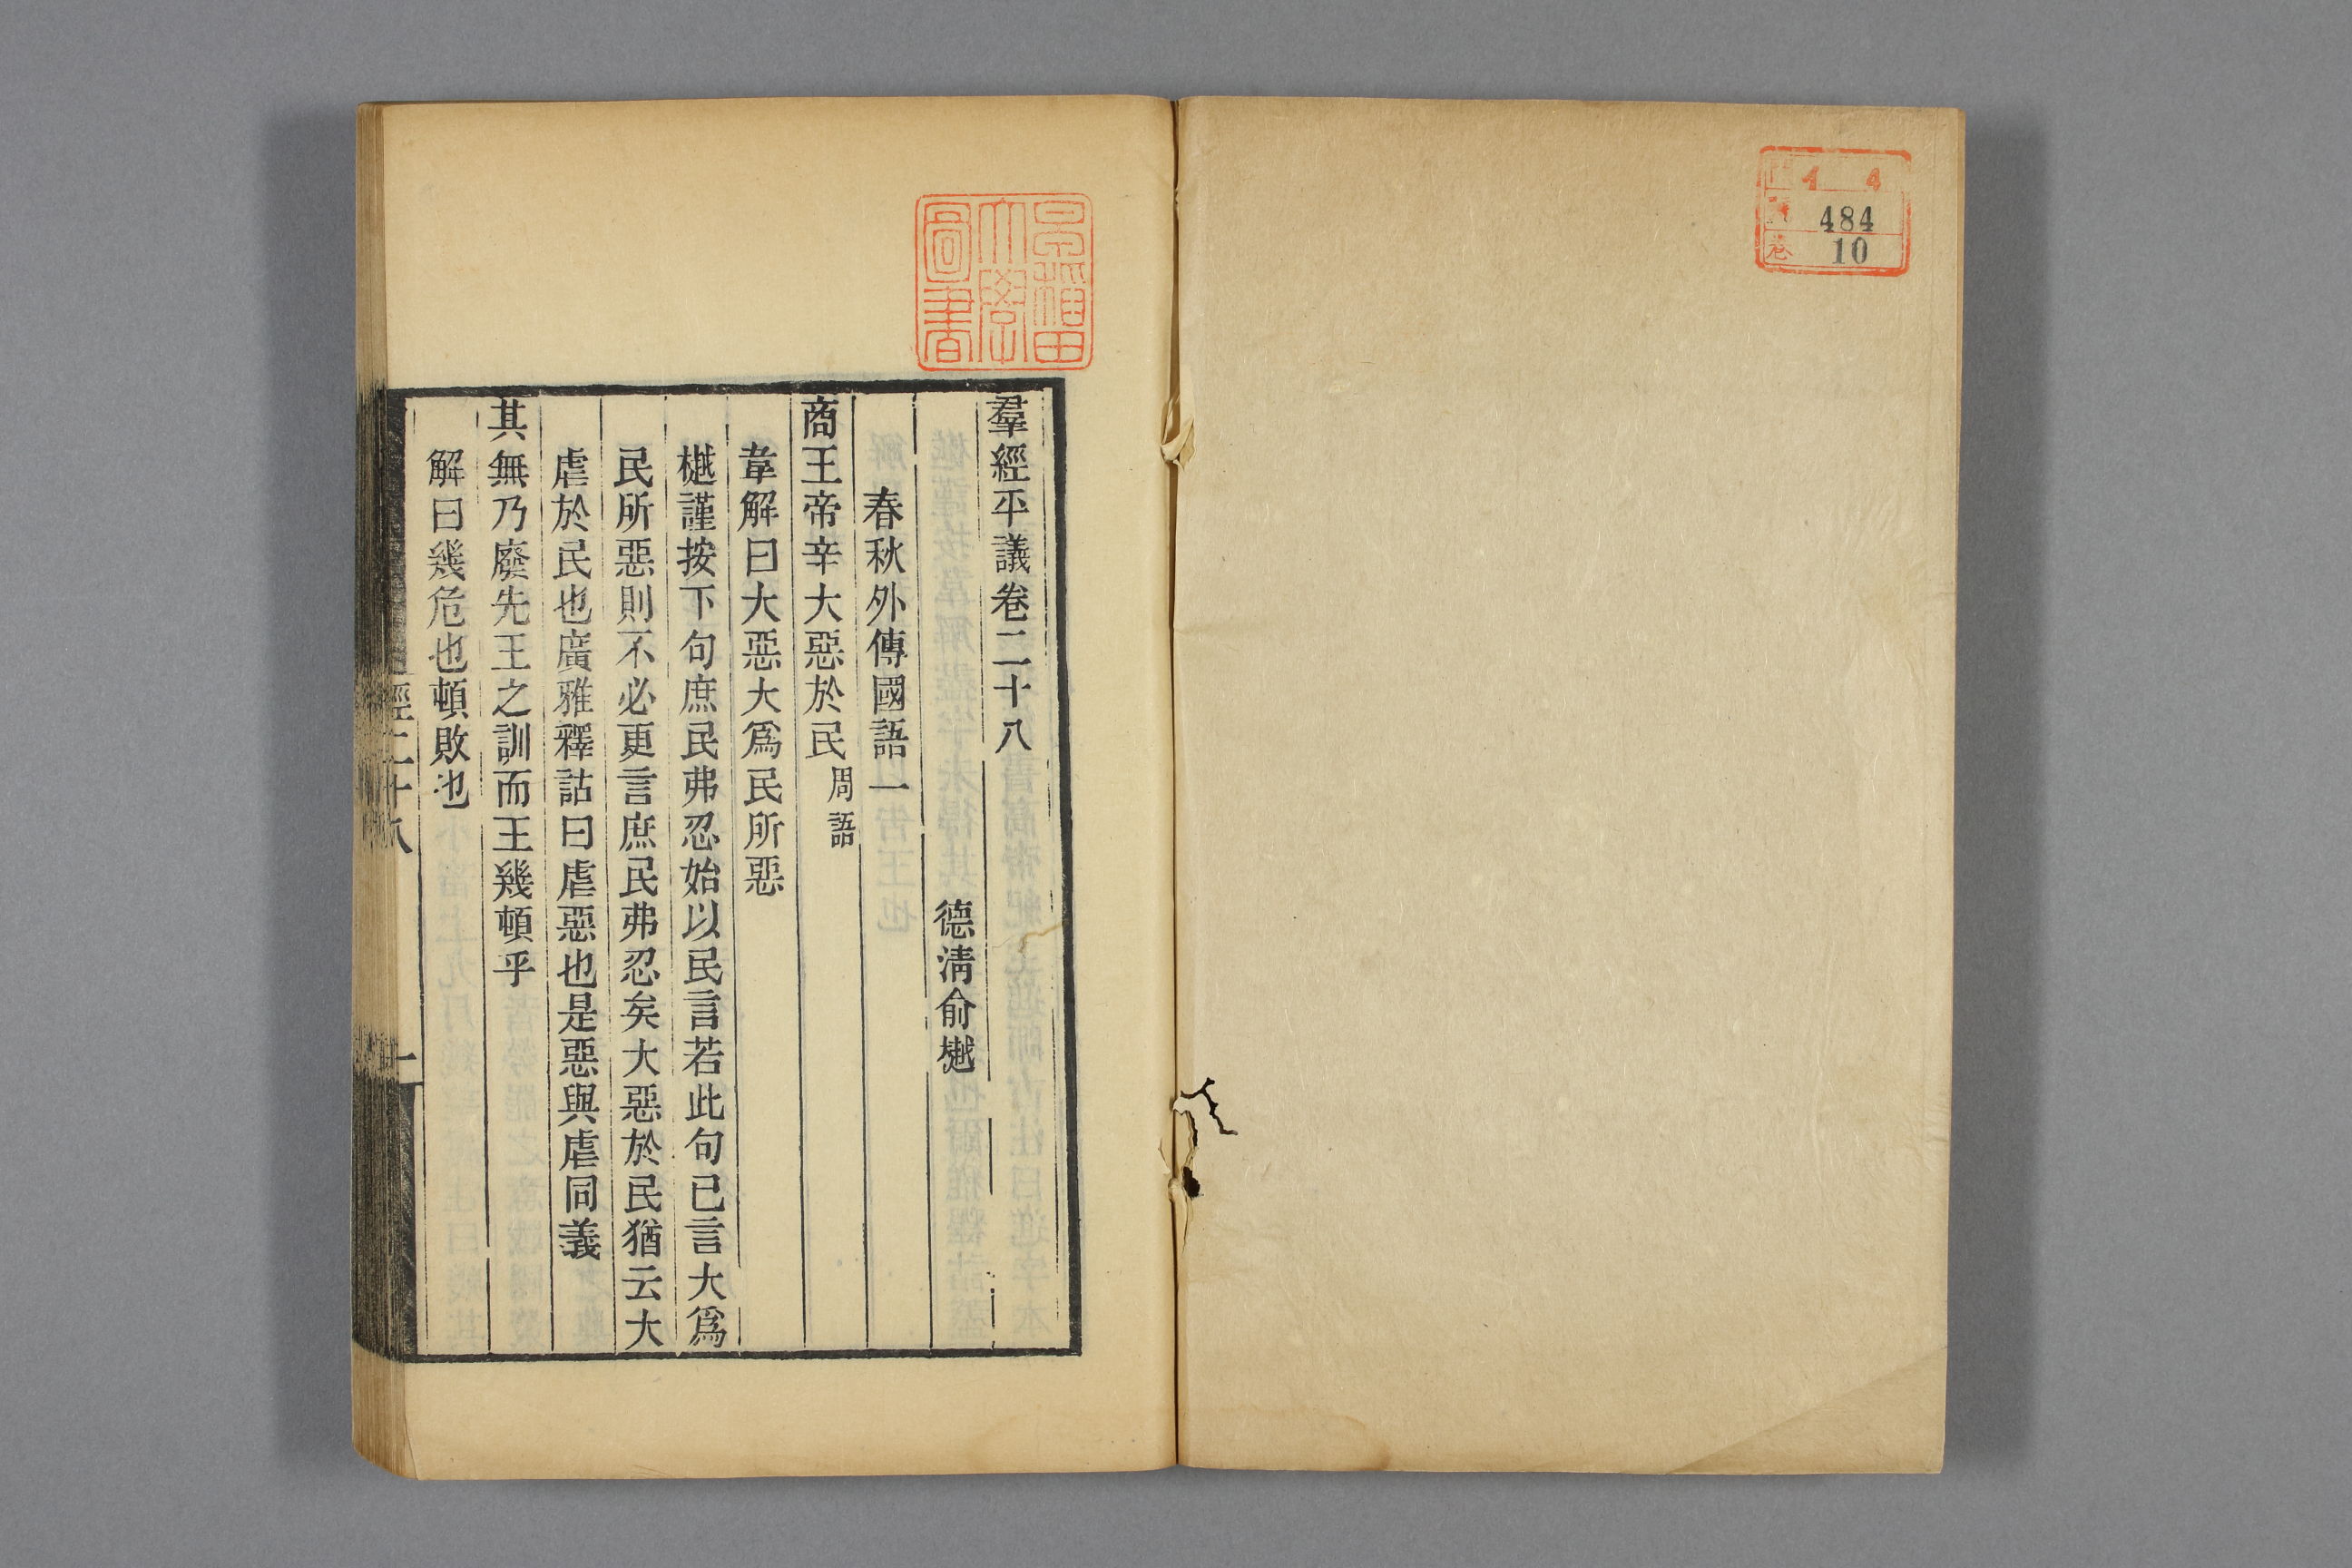 4 4
484
卷 10
早稲田
大學
圖書
羣經平議卷二十八
德清俞樾
春秋外傳國語一
商王帝辛大惡於民周語
韋解曰大惡大爲民所惡
樾謹按下句庶民弗忍始以民言若此句已言大爲
民所惡則不必更言庶民弗忍矣大惡於民猶云大
虐於民也廣雅釋詁曰虐惡也是惡與虐同義
其無乃廢先王之訓而王幾頓乎
解曰幾危也頓敗也
經二十八
一